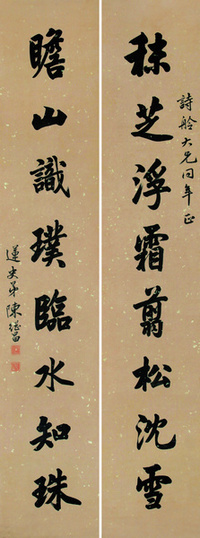 詩舲大兄同年正
秣芝浮霜翦松沈雪
瞻山識璞臨水知珠
蓮史弟陳繼昌